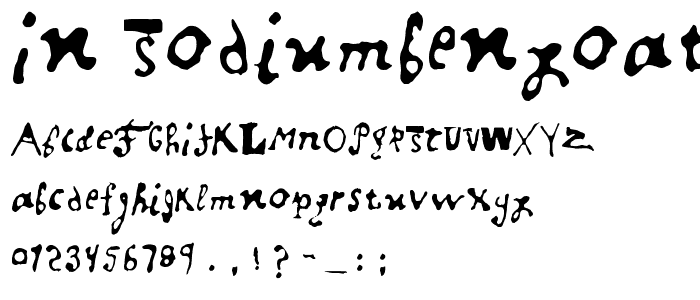 in sodiumbenzoat
AbcdeFGhiJKLMnOPqRStUVWXYZ
abcdefghijKlmnopqrstuvwxyz
0123456789 . , ! ? - _ : ;